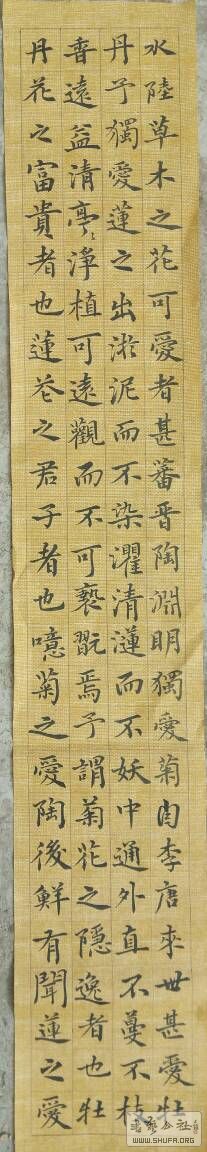 水陸草木之花可愛者甚蕃晉陶淵明獨愛菊自李唐来世甚愛牡
丹予獨愛蓮之出淤泥而不染濯清漣而不妖中通外直不蔓不枝
香遠益清亭〻淨植可遠觀而不可褻翫焉予謂菊花之隱逸者也牡
丹花之富貴者也蓮花之君子者也噫菊之愛陶後鮮有聞蓮之愛
WWW.SHUFA.ORG